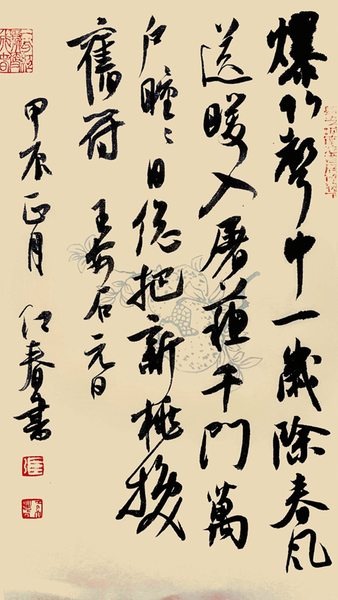 爆竹聲中一歲除春風
送暖入屠蘇千門萬
戶曈〻日總把新桃換
舊符 王安石元日
甲辰正月 仁春書